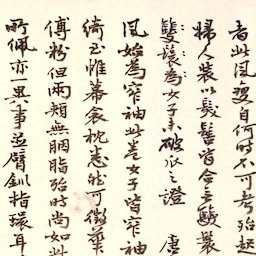 者此風変自何时不可考殆起
婦人装以鬂髻皆合去鬉鬟
雙鬟為女子未破瓜之證 唐
風始為窄袖此卷女子皆窄袖
綺玉帷幕衾枕悉可徵華
傅粉但兩頰無胭脂殆时尚如此
所佩亦一異事並臂釧指環耳